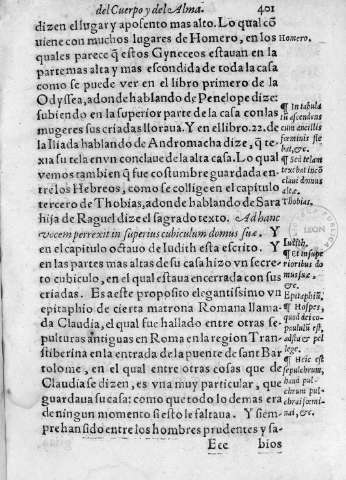 del Cuerpo y del Alma. 401
dizen el lugar y aposento mas alto. Lo qual cõ
uiene con muchos lugares de Homero, en los
quales parece q̃ estos Gyneceos estauan en la
parte mas alta y mas escondida de toda la casa
como se puede ver en el libro primero de la
Odyssea, adonde hablando de Penelope dize:
subiendo en la superior parte de la casa con las
mugeres sus criadas lloraua. Y en el libro. 22. de
la Iliada hablando de Andromacha dize, q̃ te-
xia su tela en vn conclaue de la alta casa. Lo qual
vemos tambien q̃ fue costumbre guardada en-
tre los Hebreos, como se collige en el capitulo
tercero de Thobias, adonde hablando de Sara
hija de Raguel dize el sagrado texto. Ad hanc
vocem perrexit in superius cubiculum domus suæ. Y
en el capitulo octauo de Iudith esta escrito. Y
en las partes mas altas de su casa hizo vn secre-
to cubiculo, en el qual estaua encerrada con sus
criadas. Es a este proposito elegantissimo vn
epitaphio de cierta matrona Romana llama-
da Claudia, el qual fue hallado entre otras se-
pulturas antiguas en Roma en la region Tran-
stiberina en la entrada de la puente de sant Bar
tolome, en el qual entre otras cosas que de
Claudia se dizen, es vna muy particular, que
guardaua su casa: como que todo lo demas era
de ningun momento si esto le faltaua. Y siem-
pre han sido entre los hombres prudentes y sa-
Ece bios
Homero.
¶ In tabula
in ascendens
cum ancillis
fœminis fle
bat, &c.
¶ Sed telam
texebat incõ
claue domus
altæ.
Thobias.
Iudith.
¶ Et in supe
rioribus do
mus suæ,
&c.
Epitaphiũ.
¶ Hospes,
quod deico
paululũ est,
adsta & pel
lege.
¶ Heic est
sepulchrum,
haud pul-
chrum pul-
chrai fœmi-
nai, &c.
LEON